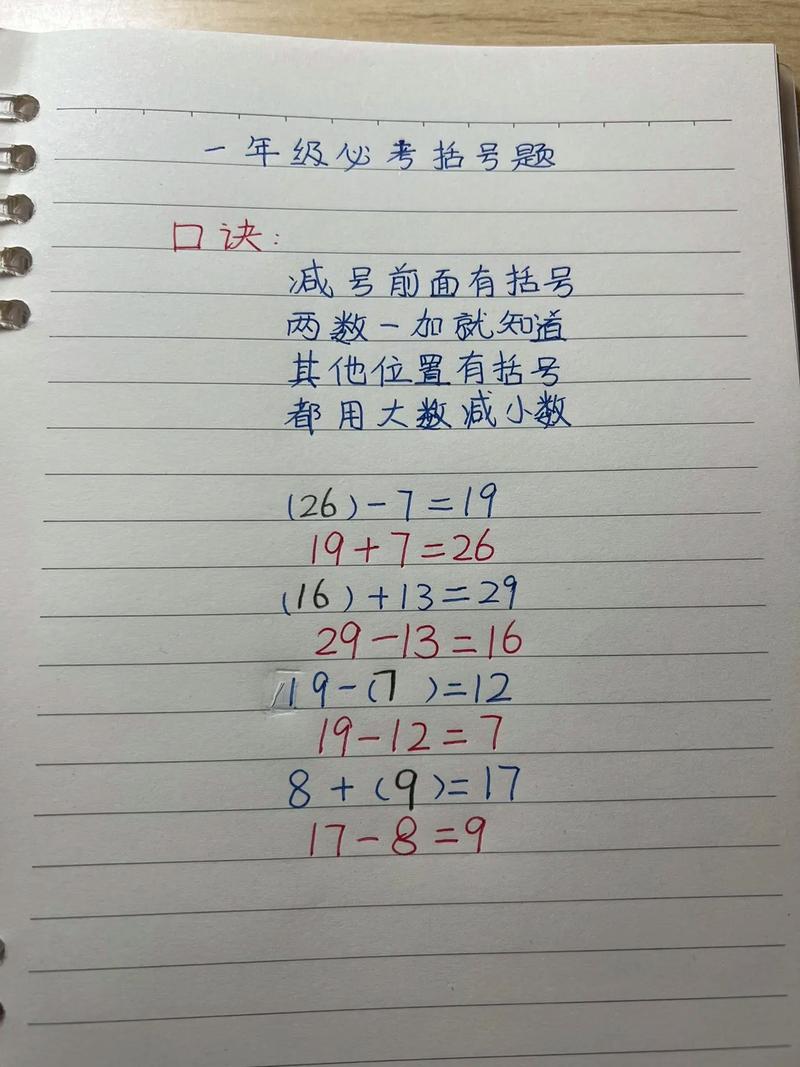 一年级必考括号题
口诀:
减号前面有括号
两数一加就知道
其他位置有括号
都用大数减小数
(26)-7=19
19+7=26
(16)+13=29
29-13=16
19-(7)=12
19-12=7
8+(9)=17
17-8=9